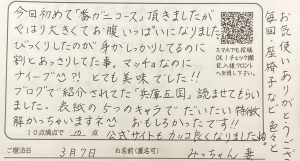 今回初めて「番ガニコース」頂きましたが
やはり大きくてお腹いっぱいになりました
びっくりしたのが身がしっかりしてるのに
割とあっさりしてた事。マッチョなのに
ナイーブ^^?! とても美味でした!!
ブログで紹介されてた「兵庫五国」読ませてもらい
ました。表紙の5つのキャラでだいたい特徴
解かっちゃいますネ^^ おもしろかったです!!
10点満点で 10 点
公式サイトもカッコ良くなりましたね。
ご宿泊日 3月7日
お名前(匿名可) みっちゃん 妻
スマホでも投稿
OK！チェック欄
記入後フロント
へお渡し下さい。
お気使いありがとうござ
毎回・座椅子など色々と